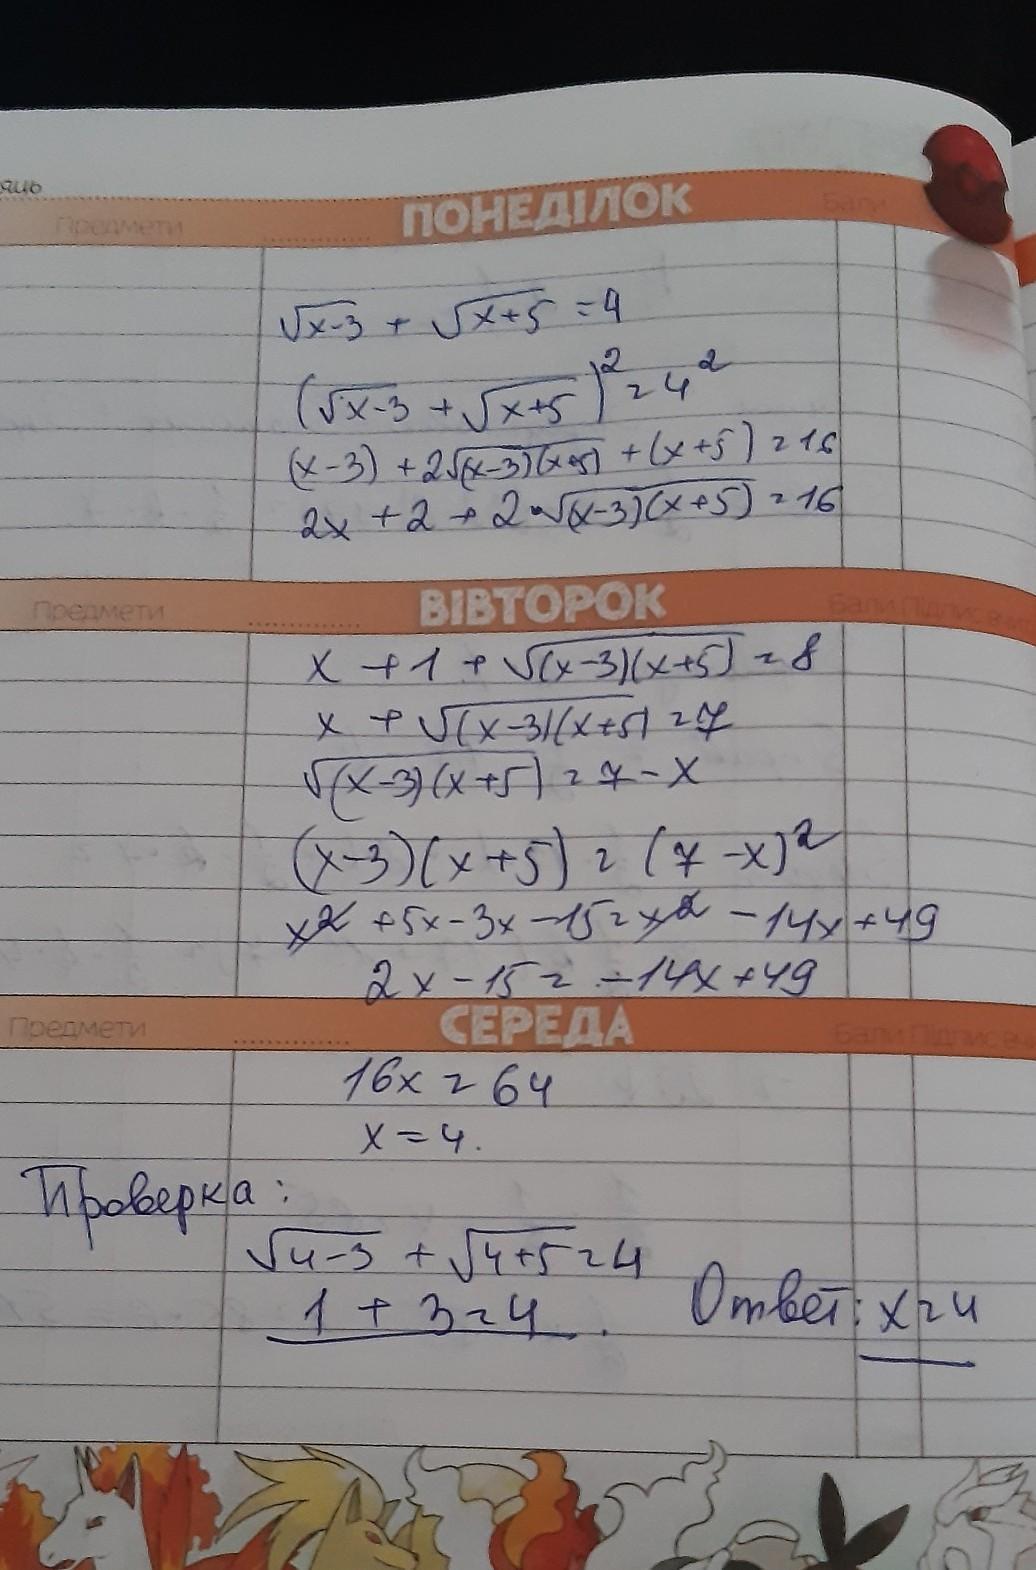 яць
Предмети ПОНЕДІЛОК Бали
√x-3 + √x+5 = 4
(√x-3 + √x+5)² = 4²
(x-3) + 2√(x-3)(x+5) + (x+5) = 16
2x + 2 + 2·√(x-3)(x+5) = 16
Предмети ВІВТОРОК Бали Підпис
x + 1 + √(x-3)(x+5) = 8
x + √(x-3)(x+5) = 7
√(x-3)(x+5) = 7 - x
(x-3)(x+5) = (7-x)²
x² + 5x - 3x - 15 = x² - 14x + 49
2x - 15 = -14x + 49
Предмети СЕРЕДА Бали Підпис
16x = 64
x = 4.
Проверка:
√4-3 + √4+5 = 4
1 + 3 = 4.
Ответ: x = 4